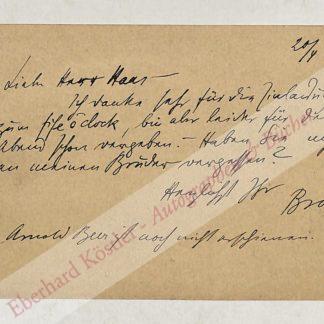 20/
Lieber Herr Haas –
Ich danke sehr für die Einladung
zum five o'clock, bin aber leider für d
Abend schon vergeben. – Haben Sie
an meinen Bruder vergessen?
Herzlichst Ihr
Bro
Arnold Beer ist noch nicht erschienen.
Eberhard Köstler - Autographen